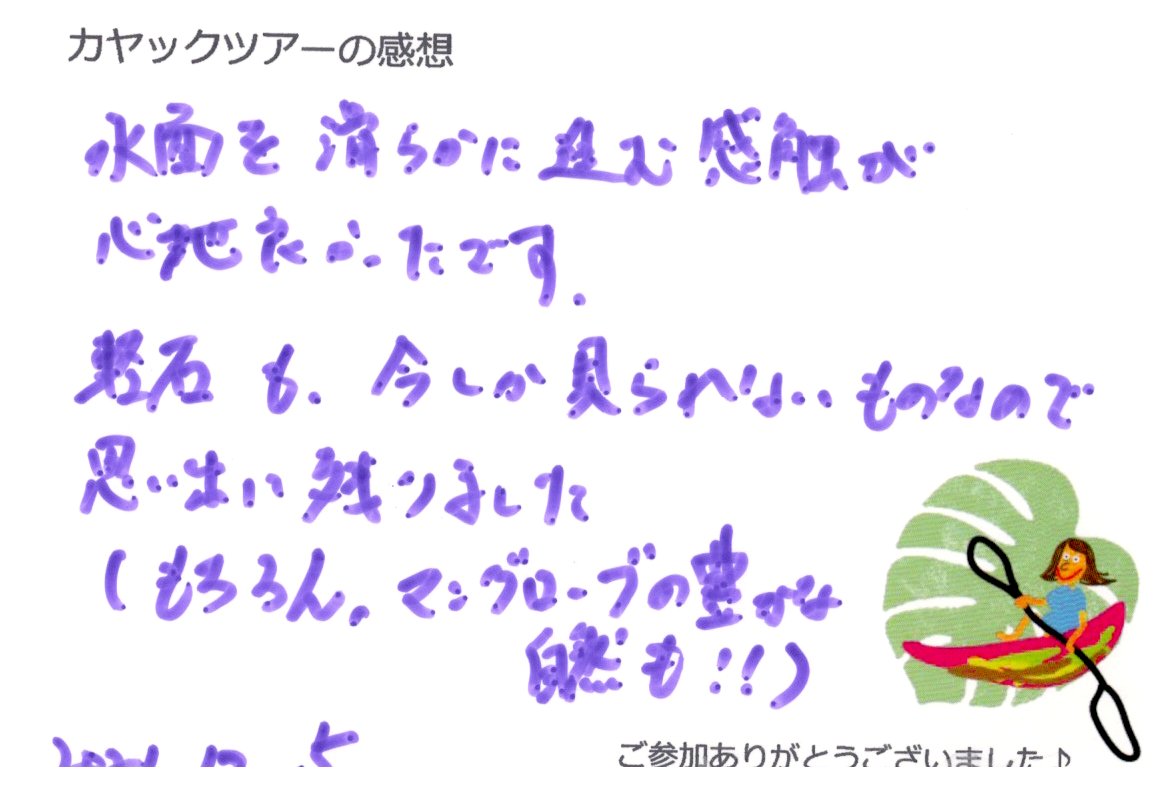 カヤックツアーの感想
水面を滑らかに進む感触が
心地良かったです.
軽石も、今しか見られないものなので
思い出に残りました
(もちろん、マングローブの豊かな
自然も!!)
ご参加ありがとうございました♪